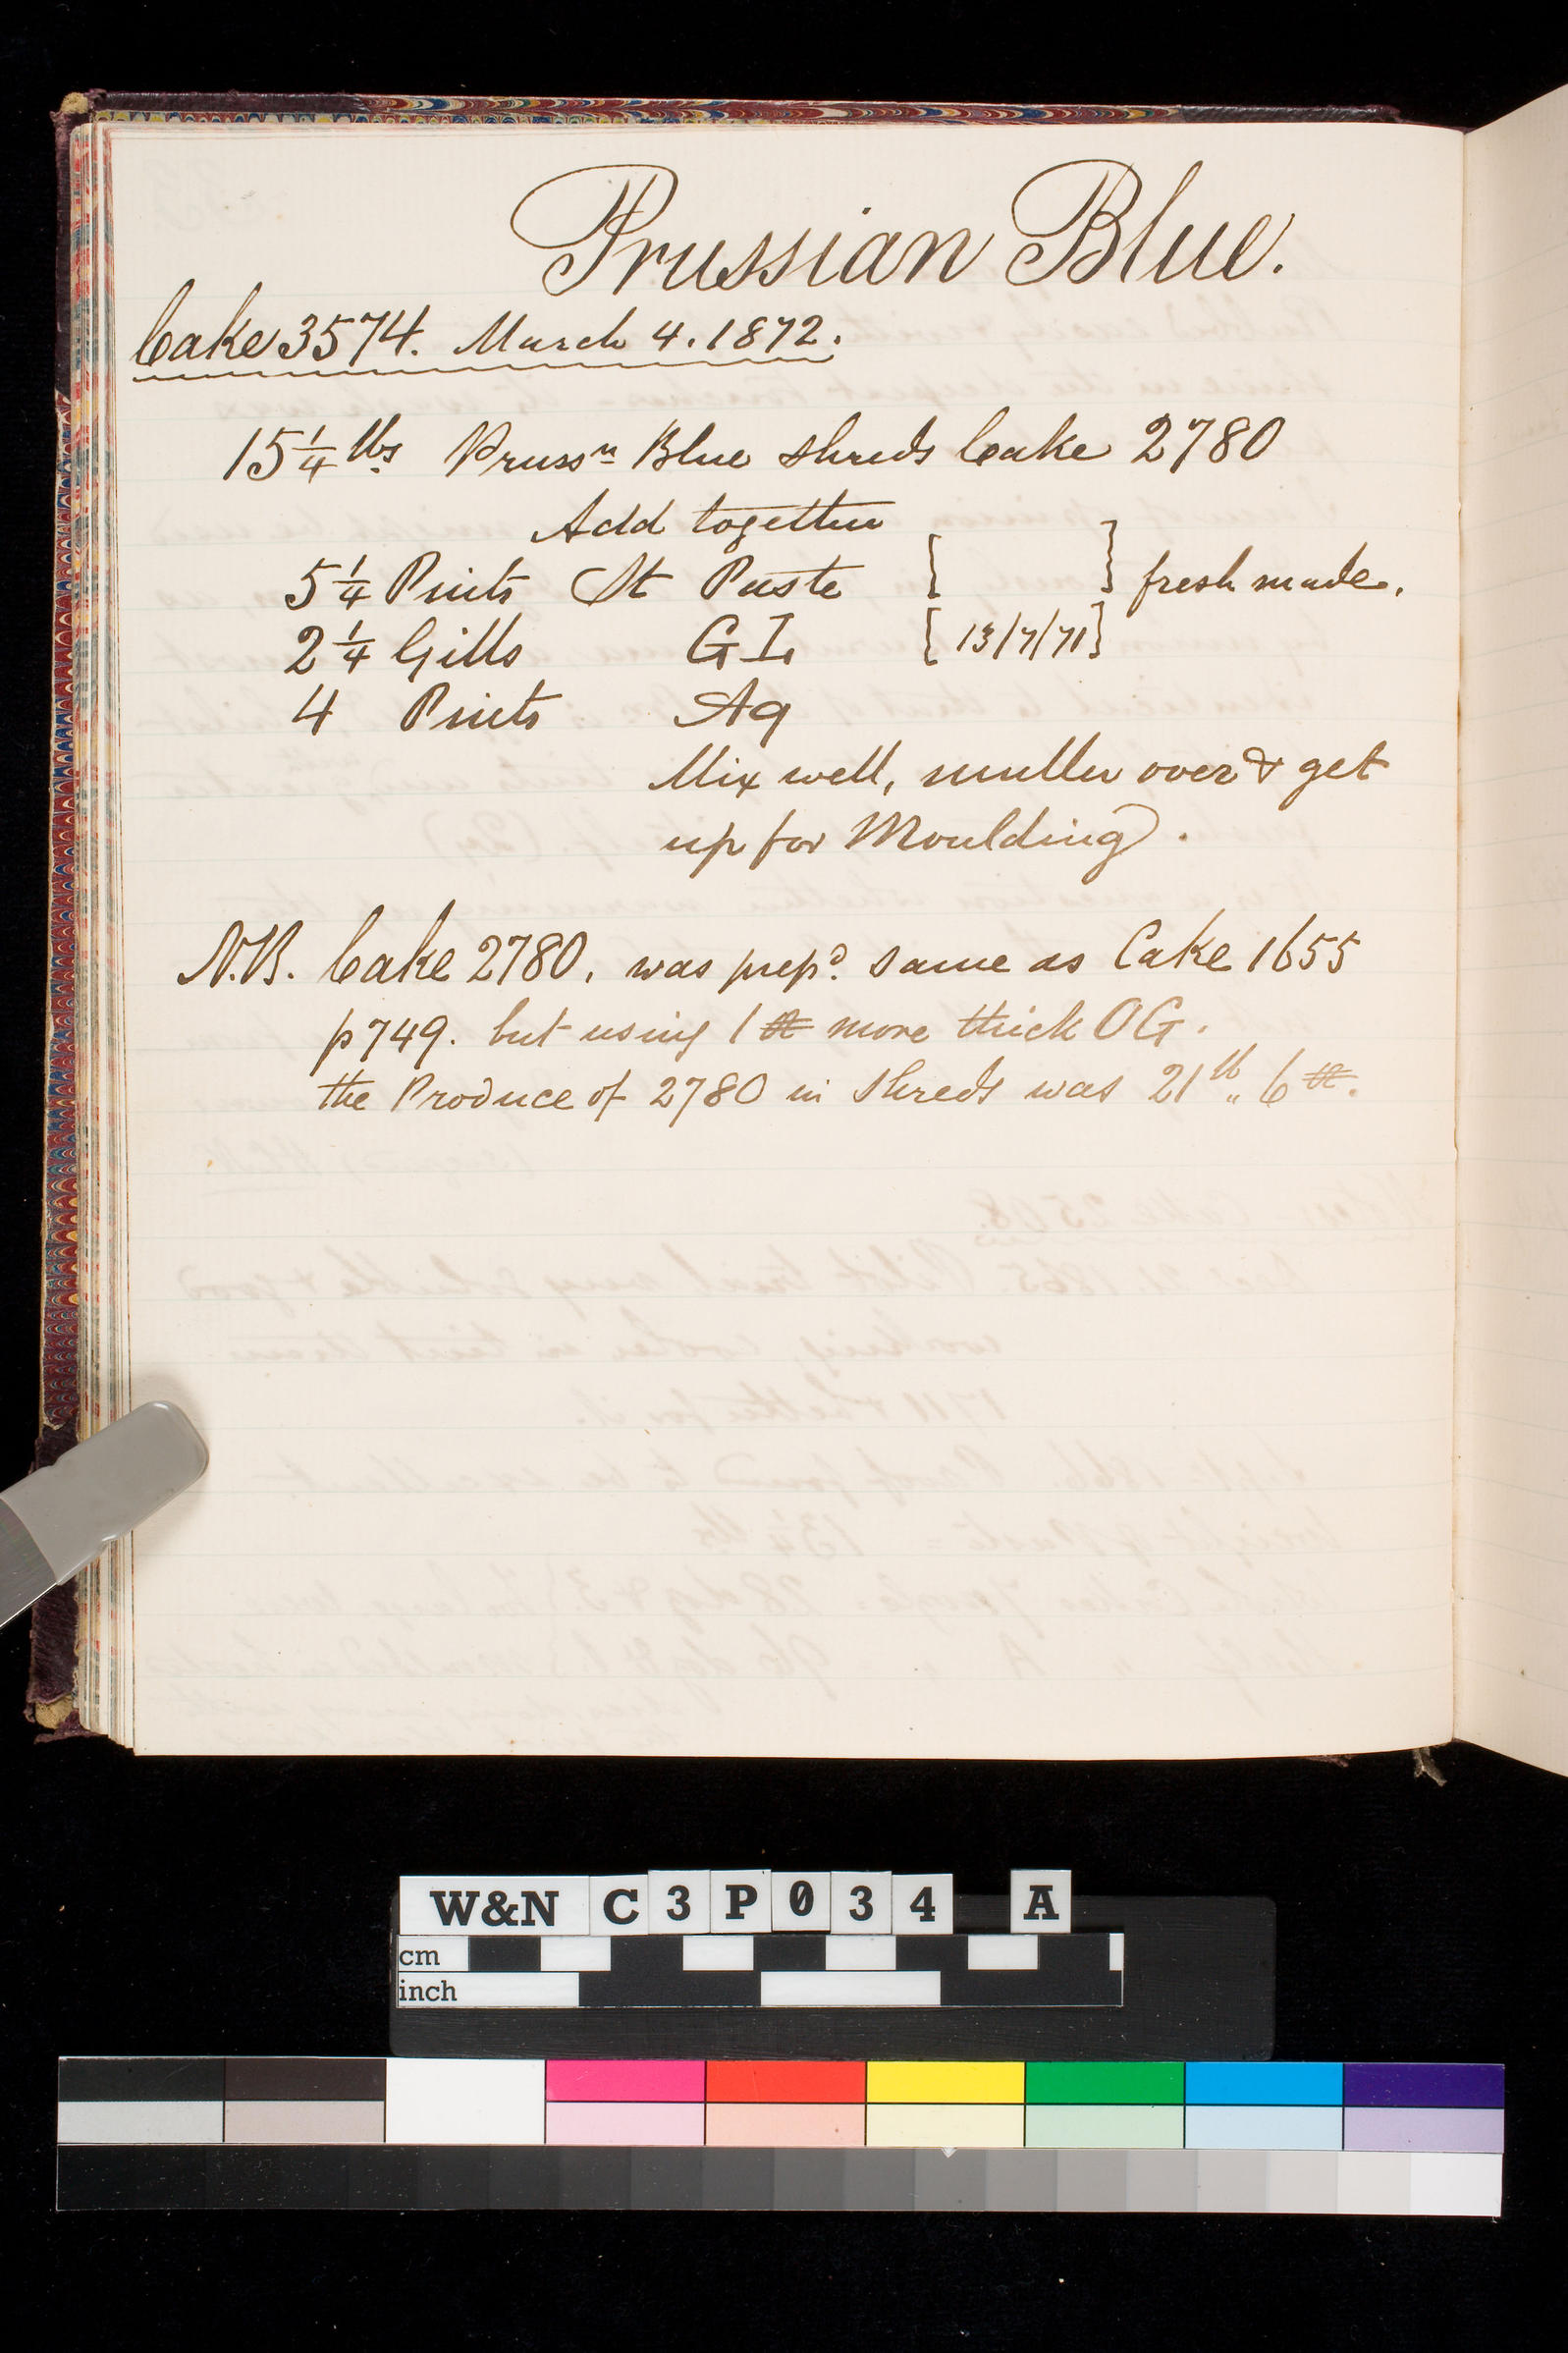 Prussian Blue.
Cake 3574. March 4. 1872.
15 1/4 lbs Prussn Blue shreds Cake 2780
Add together
5 1/4 Pints St Paste { } fresh made.
2 1/4 Gills G I, { 13/7/71 }
4 Pints Aq
Mix well, muller over & get
up for Moulding.
N.B. Cake 2780, was prepd. same as Cake 1655
p 749. but using 1 more thick OG.
the Produce of 2780 in shreds was 21 lb „ 6
W&N C3P034 A
cm
inch